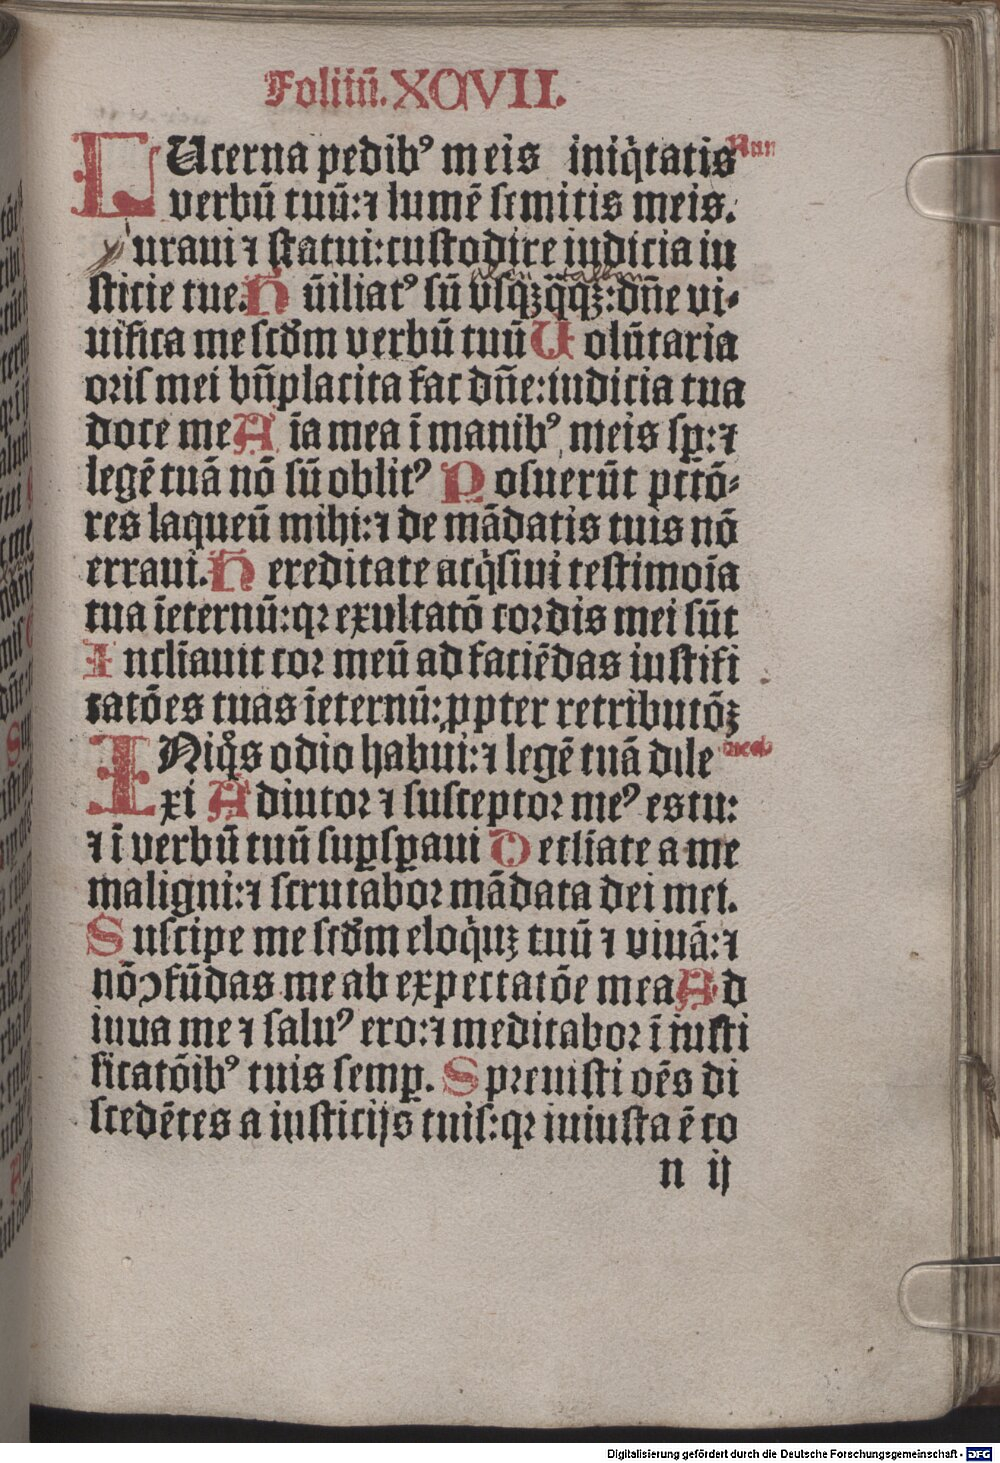 Foliū. XCVII.
LUcerna pedibꝰ meis iniq̄tatis Nun
verbū tuū: ⁊ lumē semitis meis.
uraui ⁊ statui: custodire iudicia iu
sticie tue. H ūiliatꝰ sū vsq̄ꝫ q̄q̄ꝫ: dn̄e vi-
uifica me scd̄m verbū tuū U olūtaria
oris mei bn̄placita fac dn̄e: iudicia tua
doce me A īa mea ī manibꝰ meis sp̄: ⁊
legē tuā nō sū oblitꝰ P osuerūt pctō-
res laqueū mihi: ⁊ de mādatis tuis nō
erraui. H ereditate acq̄siui testimoīa
tua īeternū: qr exultatō cordis mei sūt
I nclīauit cor meū ad faciēdas iustifi
catōes tuas īeternū: ꝓpter retributōꝫ
INiq̊s odio habui: ⁊ legē tuā dile
xi A diutor ⁊ susceptor meꝰ es tu:
⁊ ī verbū tuū suꝑsꝑaui D eclīate a me
maligni: ⁊ scrutabor mādata dei mei.
S uscipe me scd̄m eloq̄uꝫ tuū ⁊ viuā: ⁊
nō ↄfūdas me ab expectatōe mea A d
iuua me ⁊ saluꝰ ero: ⁊ meditabor ī iusti
ficatōibꝰ tuis semꝑ. S preuisti oēs di
scedētes a iusticijs tuis: qr iniusta ē co
n ij
Digitalisierung gefördert durch die Deutsche Forschungsgemeinschaft - DFG